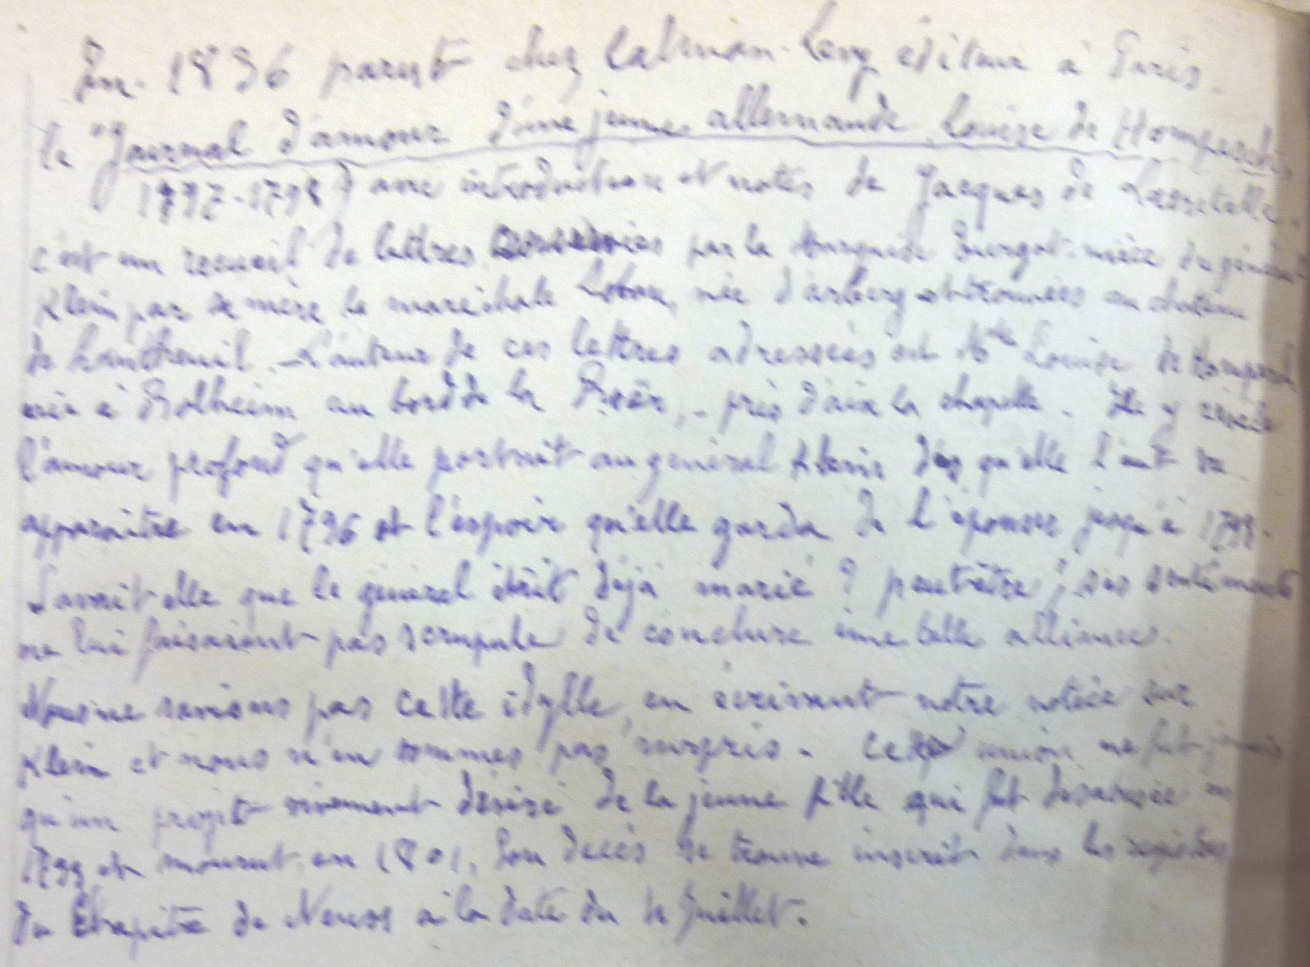 En 1936 parut chez Calman-Levy éditeur à Paris.
le "Journal d'amour d'une jeune allemande Louise de Hompesch,
1797-1798) avec introduction et notes de Jacques de Lacretelle.
c'est un recueil de lettres conservées par la marquise Turgot. nièce du général
Klein par sa mère la maréchale Lobau, née d'arberg et trouvées au chateau
de Lantheuil. L'auteur de ces lettres adressées est Mlle Louise de Hompesch
née à Bolheim au bord de la Roër, près d'aix la chapelle. Elle y révèle
l'amour profond qu'elle portait au général Klein dès qu'elle l'eut vu
apparaitre en 1796 et l'espoir qu'elle garda de l'épouser jusqu'à 1798.
Savait elle que le général était déjà marié ? peut être ; ses sentiments
ne lui faisaient pas scrupule de conclure une telle alliance.
Nous ne savions pas cette idylle, en écrivant notre notice sur
Klein et nous n'en sommes pas surpris. Cette union ne fut jamais
qu'un projet vivement désiré de la jeune fille qui fut désabusée en
1799 et mourut en 1801. Son décès se trouve inscrit dans les registres
du Chapitre de Neuss à la date du Juillet.